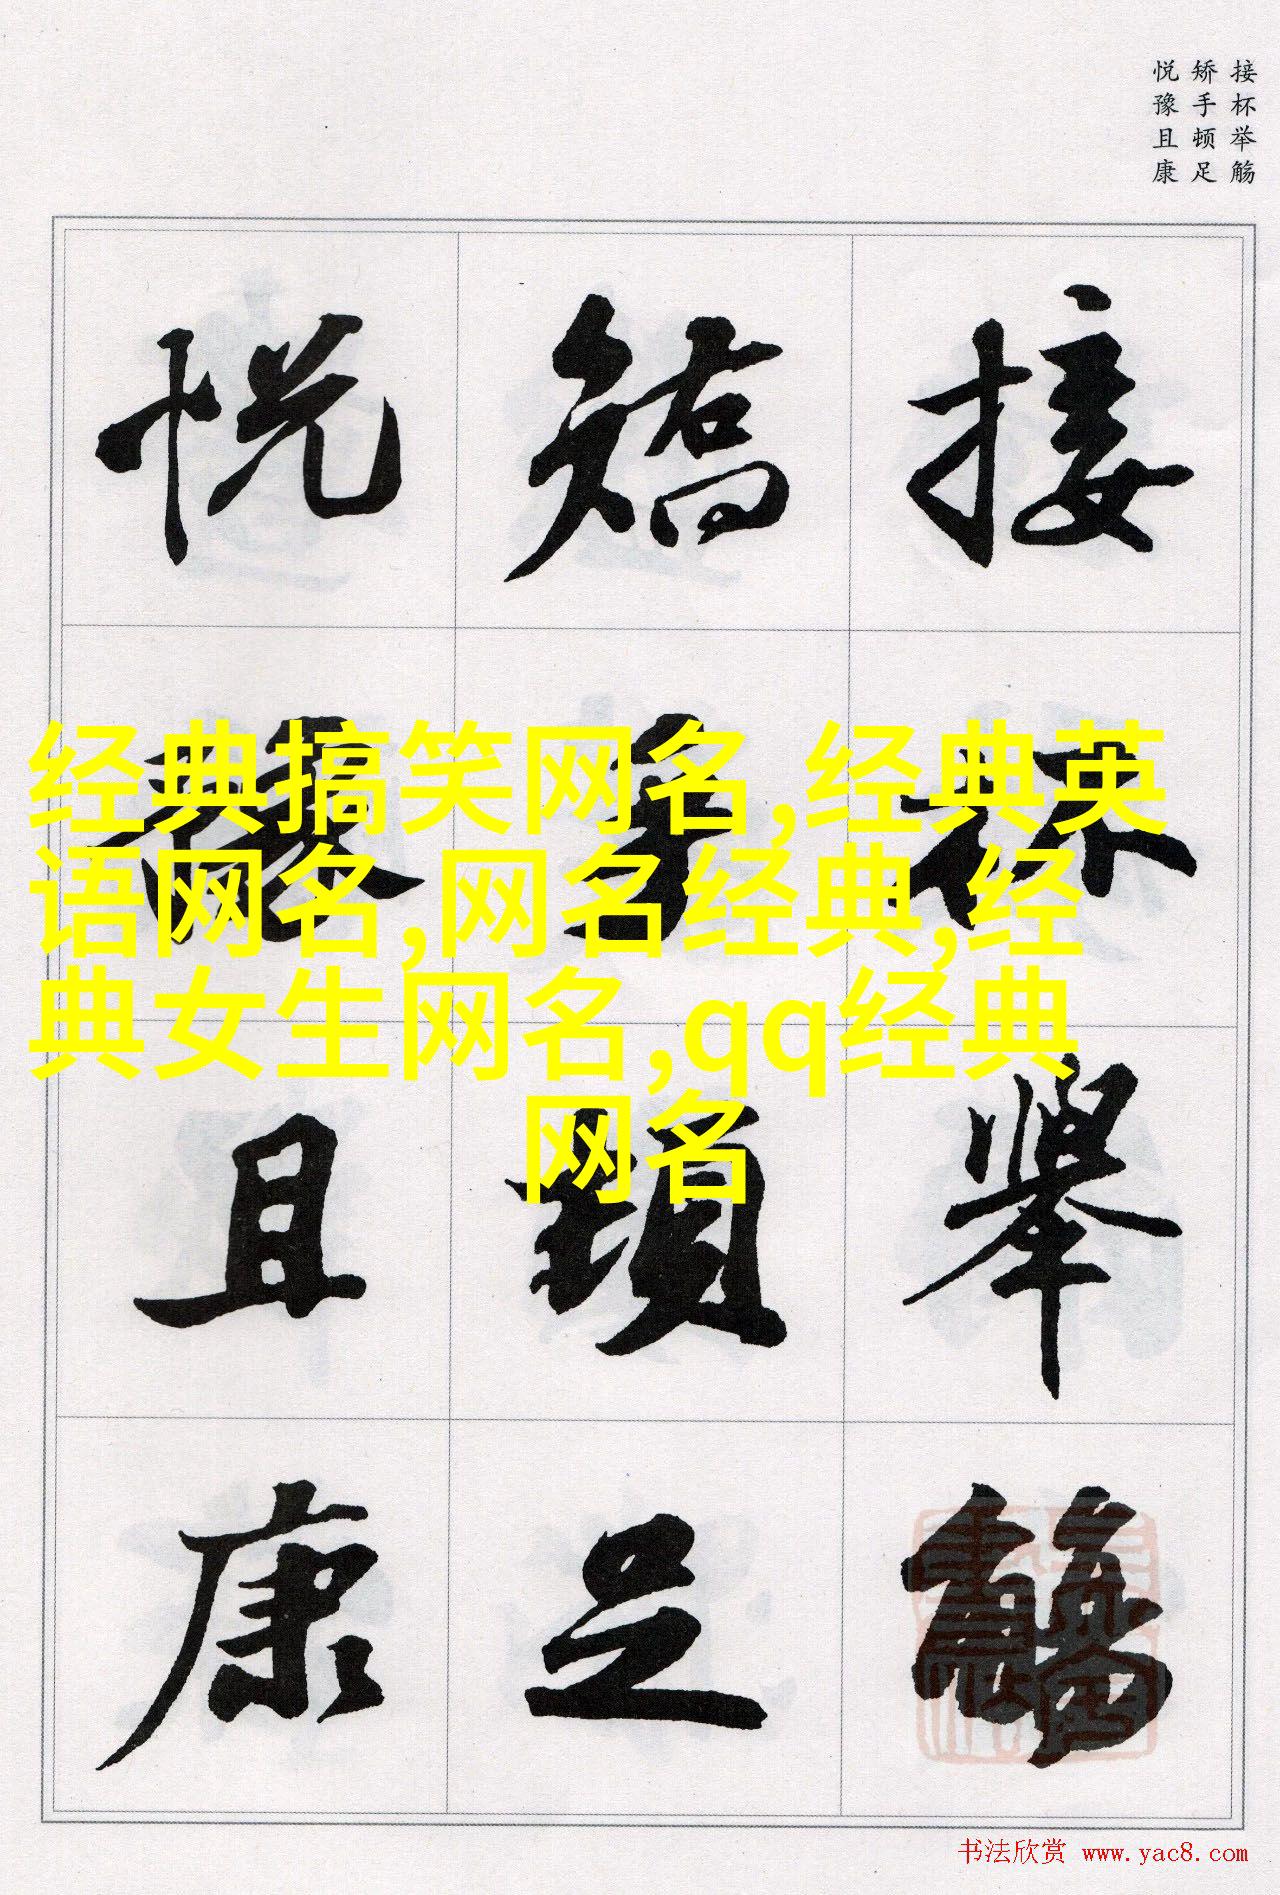 接杯举觞
矫手顿足
悦豫且康
接杯舉觴
矯手頓足
悦豫且康
经典搞笑网名,经典英
语网名,网名经典,经
典女生网名,qq经典
网名
书法欣赏 www.yac8.com